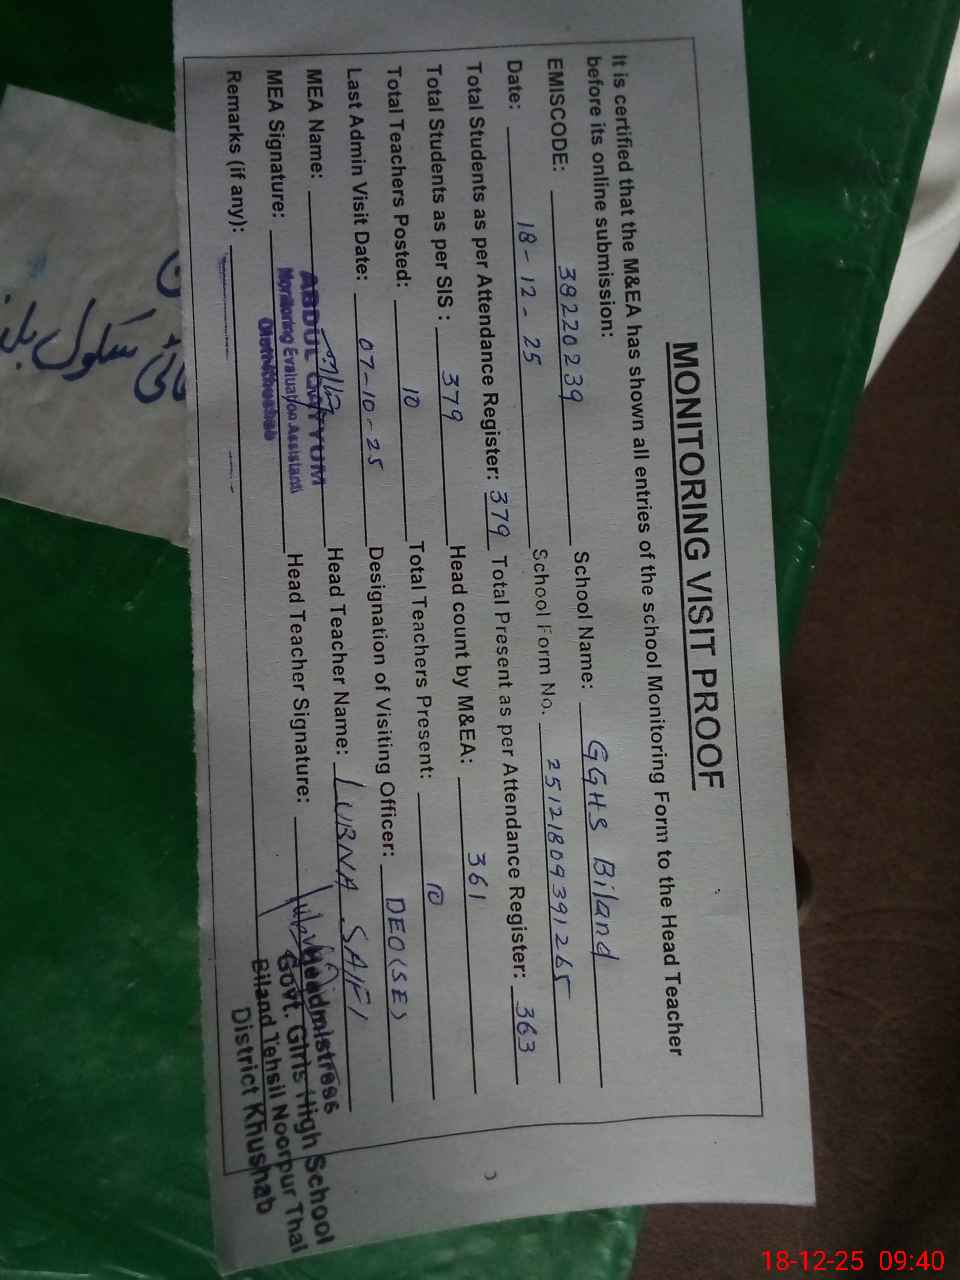 MONITORING VISIT PROOF
It is certified that the M&EA has shown all entries of the school Monitoring Form to the Head Teacher
before its online submission:
EMISCODE: 38220239 School Name: GGHS Biland
Date: 18-12-25 School Form No. 25121809391265
Total Students as per Attendance Register: 379 Total Present as per Attendance Register: 363
Total Students as per SIS: 379 Head count by M&EA: 361
Total Teachers Posted: 10 Total Teachers Present: 10
Last Admin Visit Date: 07-10-25 Designation of Visiting Officer: DEO(SE)
MEA Name: ABDUL QAYYUM Head Teacher Name: LUBNA SAIFI
MEA Signature: Monitoring Evaluation Assistant Head Teacher Signature:
Distt. Khushab
Remarks (if any):
Headmistress
Govt. Girls High School
Biland Tehsil Noorpur Thal
District Khushab
سکول
18-12-25 09:40